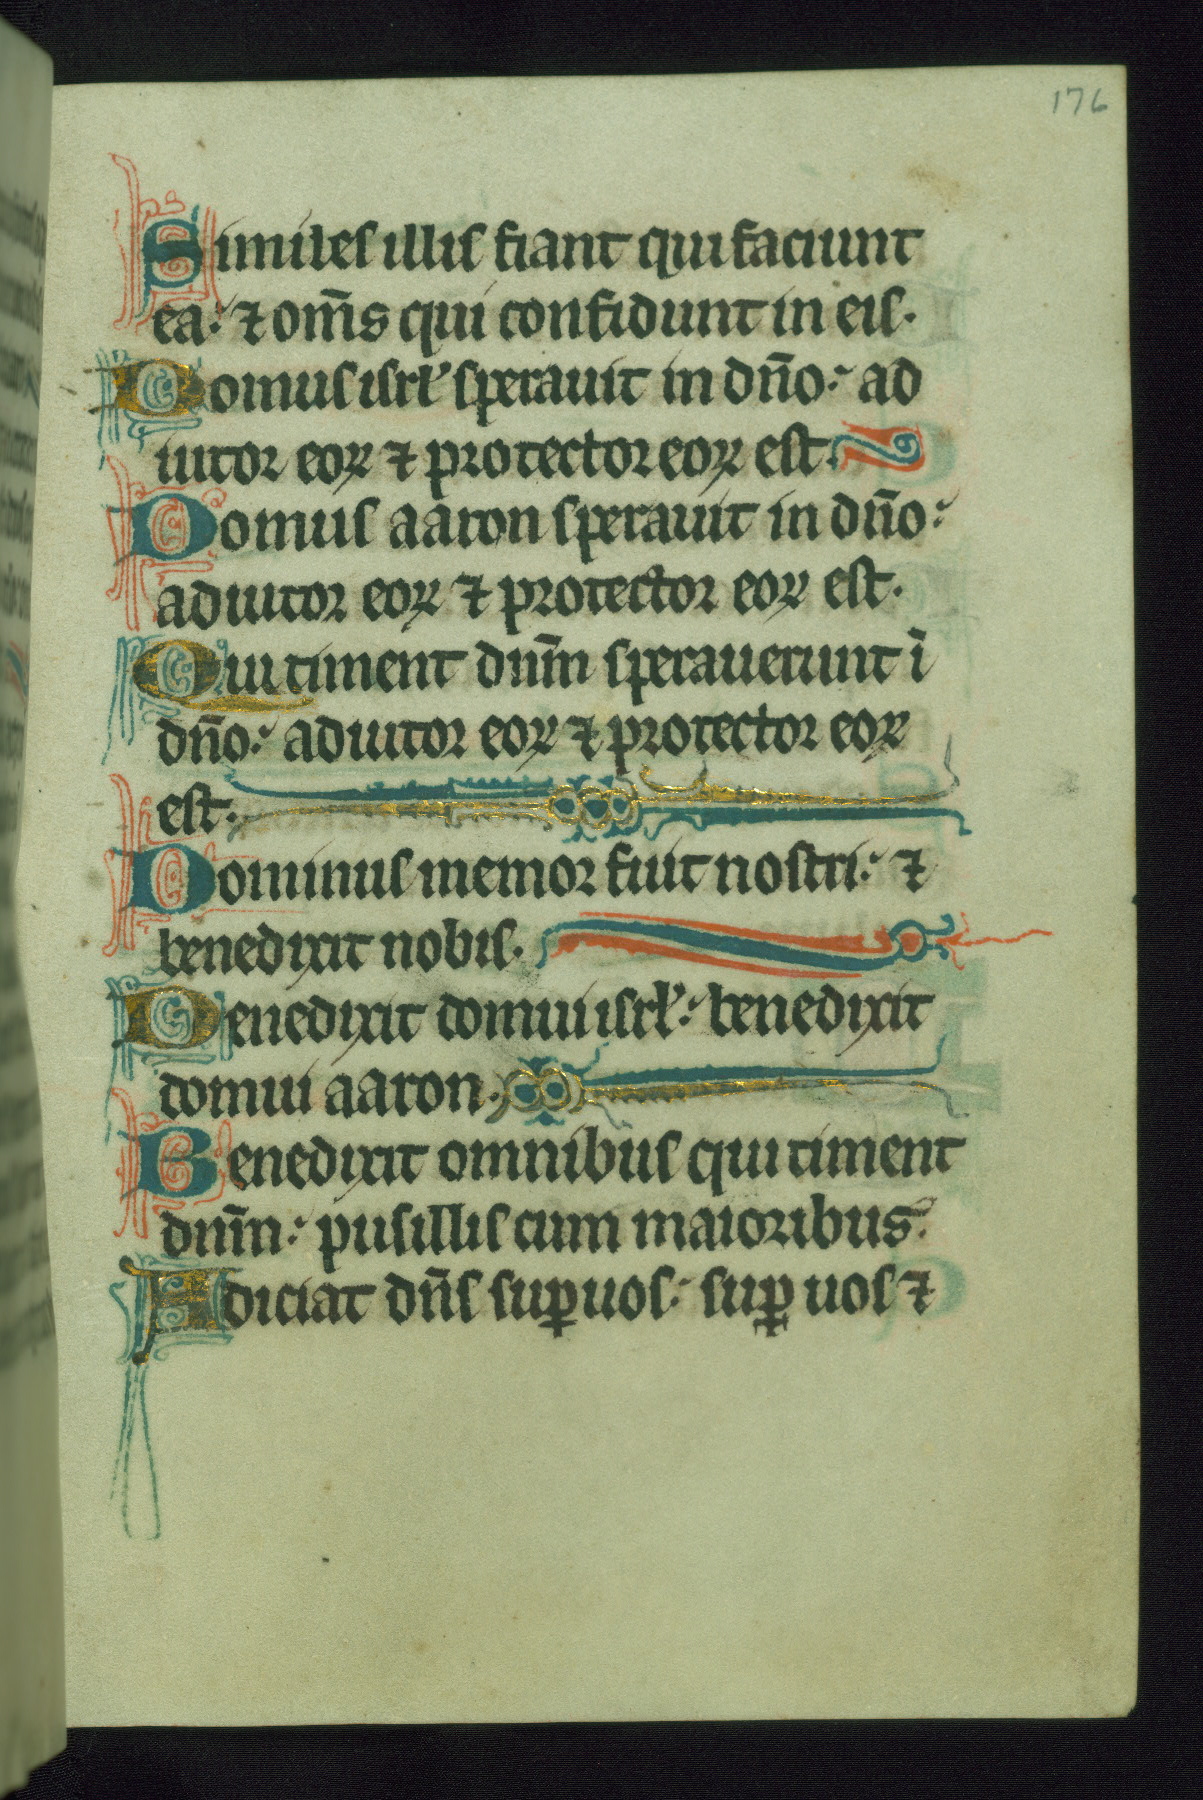 176
Similes illis fiant qui faciunt
ea: ⁊ om̄s qui confidunt in eis.
Domus isrl' sperauit in dn̄o: ad
iutor eoꝝ ⁊ protector eoꝝ est.
Domus aaron sperauit in dn̄o:
adiutor eoꝝ ⁊ protector eoꝝ est.
Qui timent dnm̄ sperauerunt ī
dn̄o: adiutor eoꝝ ⁊ protector eoꝝ
est.
Dominus memor fuit nostri: ⁊
benedixit nobis.
Benedixit domui isrl': benedixit
domui aaron.
Benedixit omnibus qui timent
dnm̄: pusillis cum maioribus.
Adiciat dn̄s suꝑ uos: suꝑ uos ⁊